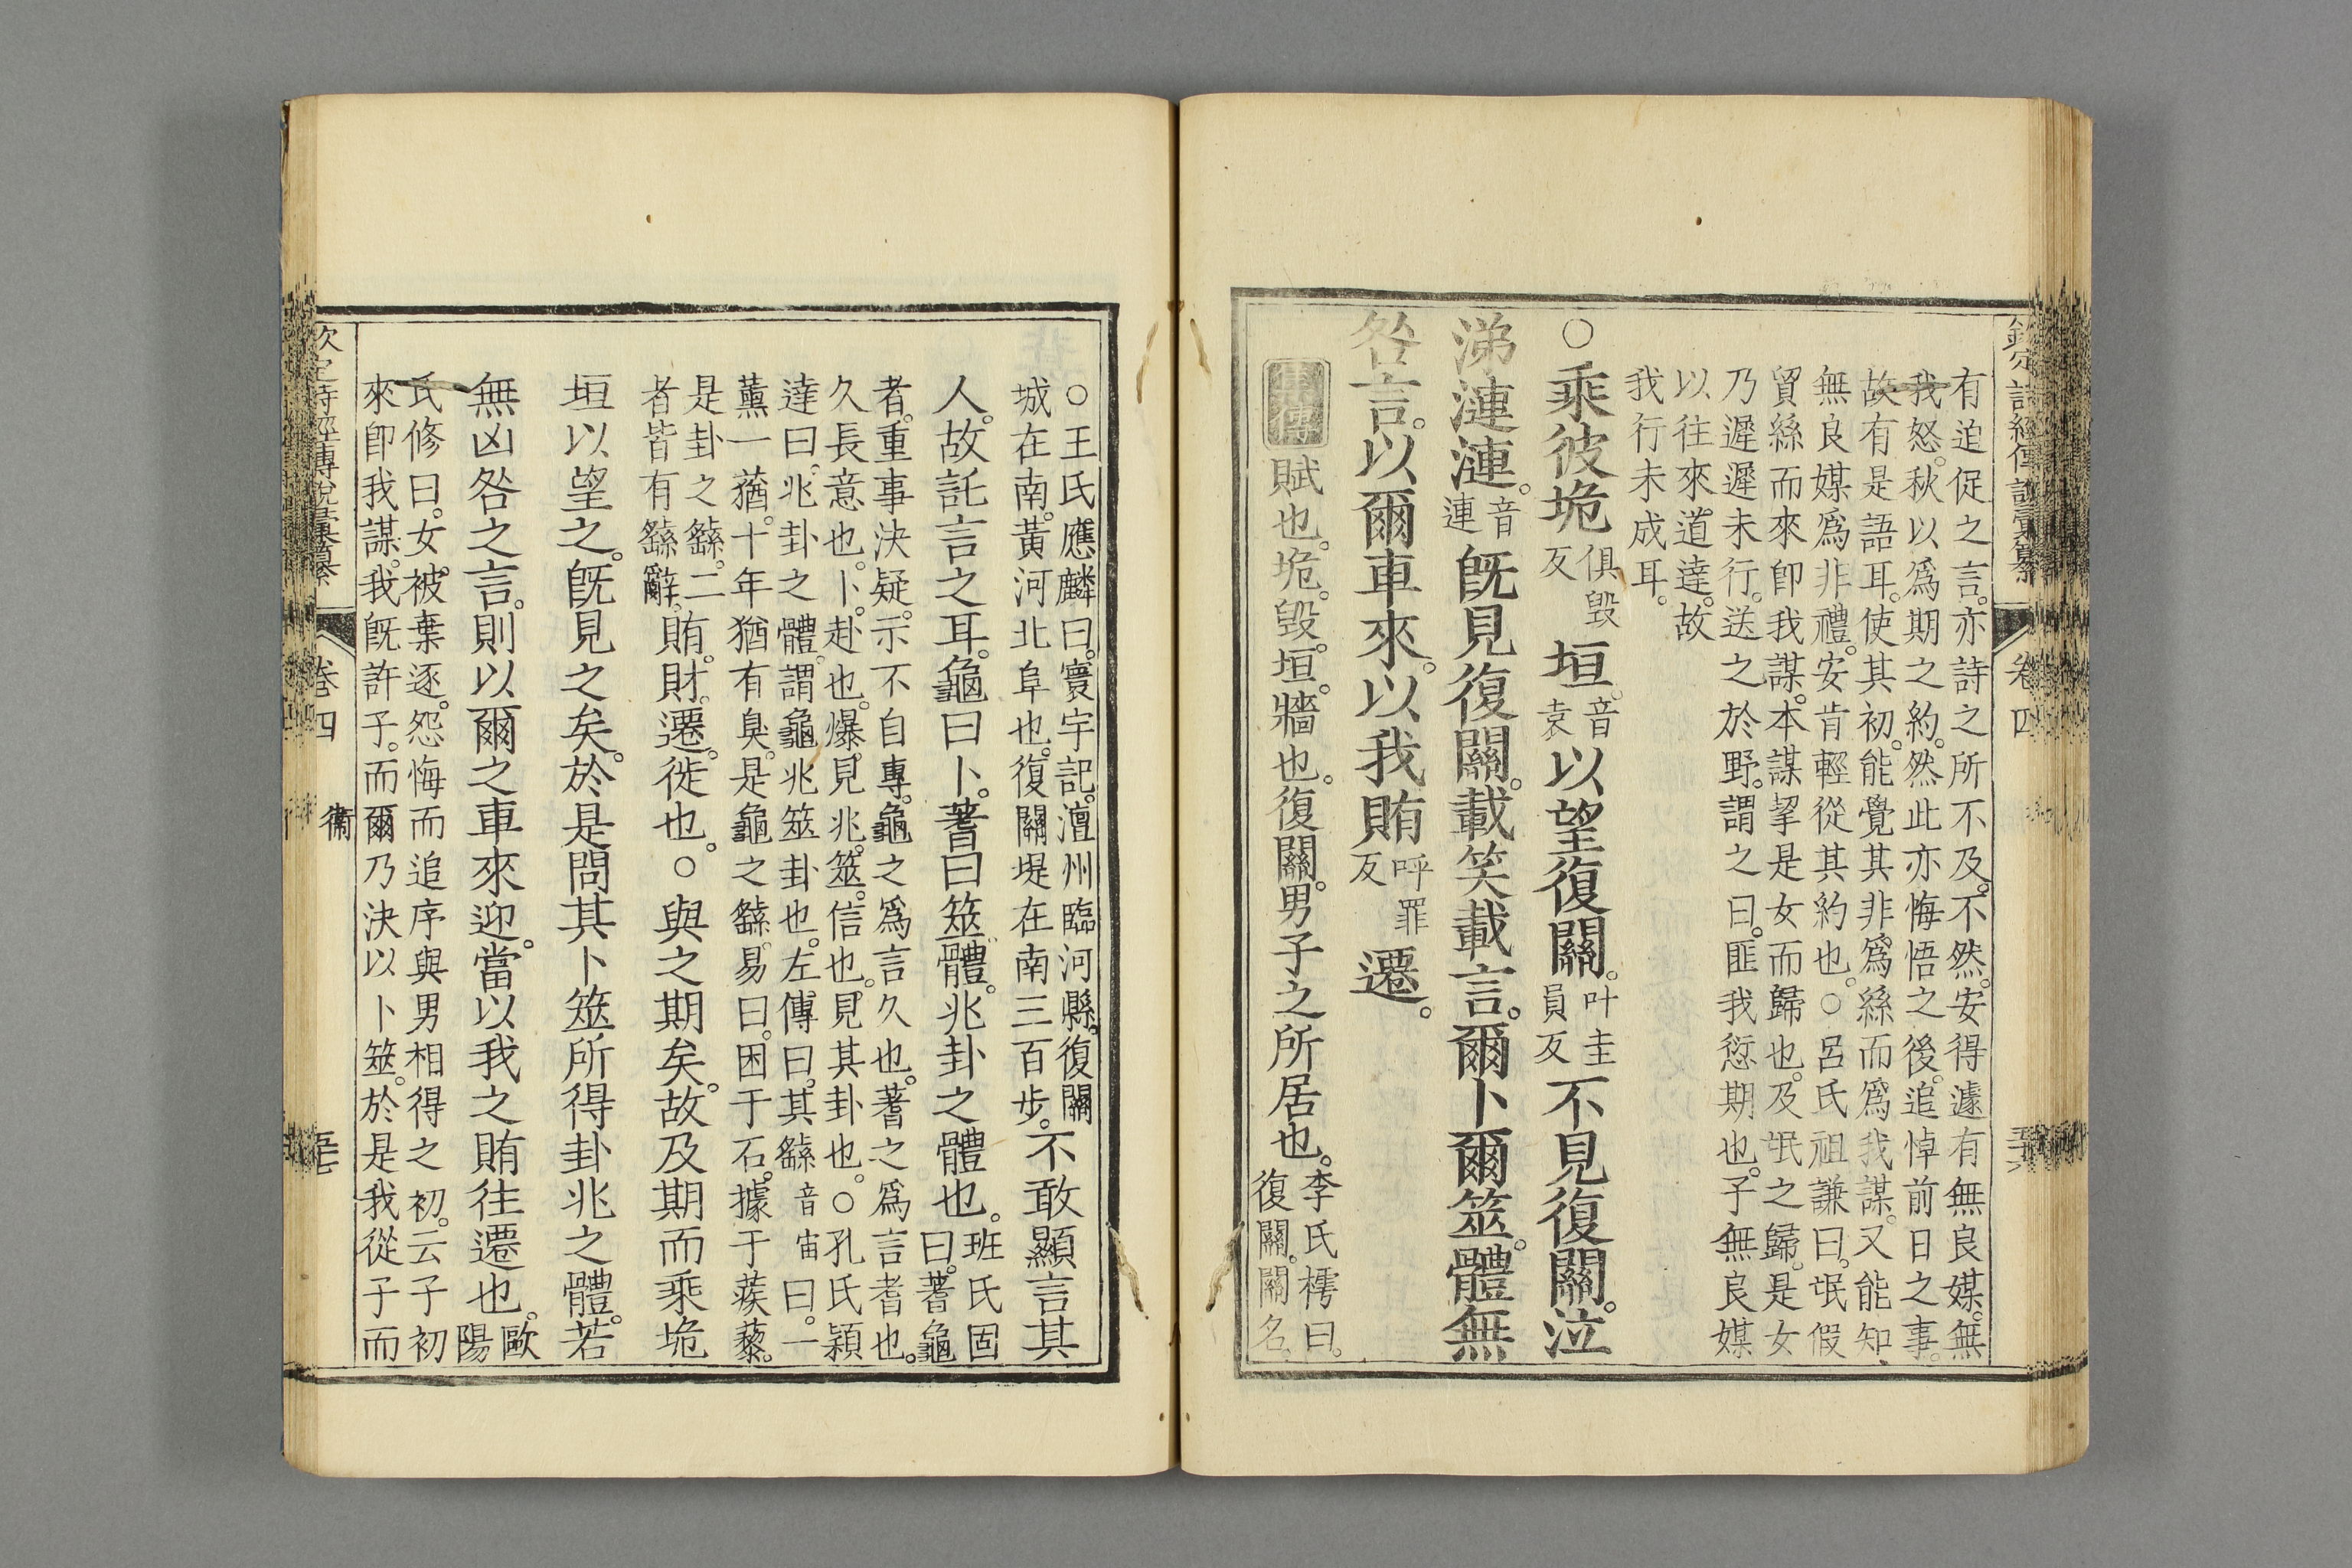 欽定詩經傳說彙纂 卷四
有迫促之言。亦詩之所不及。不然。安得遽有無良媒。無
我怒。秋以爲期之約。然此亦悔悟之後。追悼前日之事。
故有是語耳。使其初。能覺其非爲絲而爲我謀。又能知
無良媒爲非禮。安肯輕從其約也。○呂氏祖謙曰。氓假
貿絲而來卽我謀。本謀挈是女而歸也。及氓之歸。是女
乃遲遲未行。送之於野。謂之曰。匪我愆期也。子無良媒
以往來。道達。故
我行未成耳。
○乘彼垝俱毀
反垣音
袁以望復關。叶圭
員反不見復關。泣
涕漣漣。音
連旣見復關。載笑載言。爾卜爾筮。體無
咎言。以爾車來。以我賄呼罪
反遷。
集傳賦也。垝。毀。垣。牆也。復關。男子之所居也。李氏樗曰。
復關。關名。
○王氏應麟曰。寰宇記。澶州臨河縣。復關
城在南。黃河北阜也。復關堤在南三百步。不敢顯言其
人。故託言之耳。龜曰卜。蓍曰筮。體。兆卦之體也。班氏固
曰。蓍龜
者。重事決疑。示不自專。龜之爲言久也。蓍之爲言耆也。
久長意也。卜。赴也。爆見兆。筮。信也。見其卦也。○孔氏穎
達曰。兆卦之體。謂龜兆筮卦也。左傳曰。其繇音宙曰。一
薰一蕕。十年猶有臭。是龜之繇。易曰。困于石。據于蒺藜。
是卦之繇。二
者皆有繇辭。賄。財。遷。徙也。○與之期矣。故及期而乘垝
垣以望之。旣見之矣。於是問其卜筮所得卦兆之體。若
無凶咎之言。則以爾之車來迎。當以我之賄往遷也。歐
陽
氏修曰。女被棄逐。怨悔而追序與男相得之初。云子初
來卽我謀。我旣許子。而爾乃決以卜筮。於是我從子而
欽定詩經傳說彙纂 卷四 衞